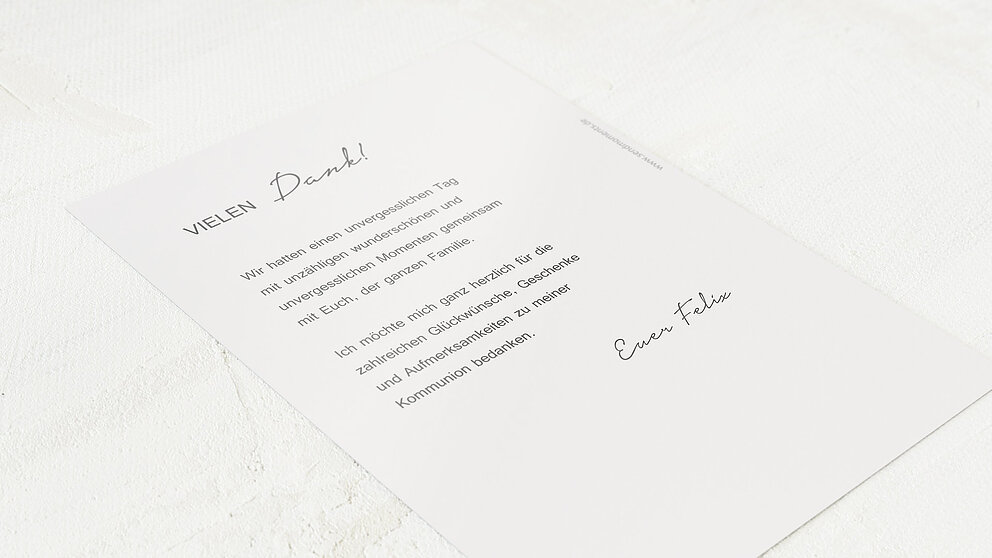 VIELEN Dank!
Wir hatten einen unvergesslichen Tag
mit unzähligen wunderschönen und
unvergesslichen Momenten gemeinsam
mit Euch, der ganzen Familie.
Ich möchte mich ganz herzlich für die
zahlreichen Glückwünsche, Geschenke
und Aufmerksamkeiten zu meiner
Kommunion bedanken.
Euer Felix
www.sendmoments.de